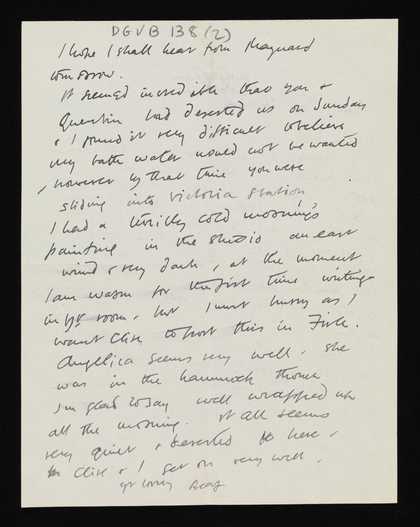 DGVB 138 (2)
I hope I shall hear from Maynard
tomorrow.
It seemed incredible that you &
Quentin had deserted us on Sunday
& I found it very difficult to believe
my bath water would not be wanted
, however by that time you were
sliding into Victoria Station
I had a thrilly cold morning's
painting in the studio an east
wind & very dark, at the moment
I am warm for the first time writing
in yr room, but I must hurry as I
want Clive to post this in Firle.
Angelica seems very well, she
was in the hammock though
I'm glad to say well wrapped up
all the morning. It all seems
very quiet & deserted here,
Clive & I get on very well.
yr loving